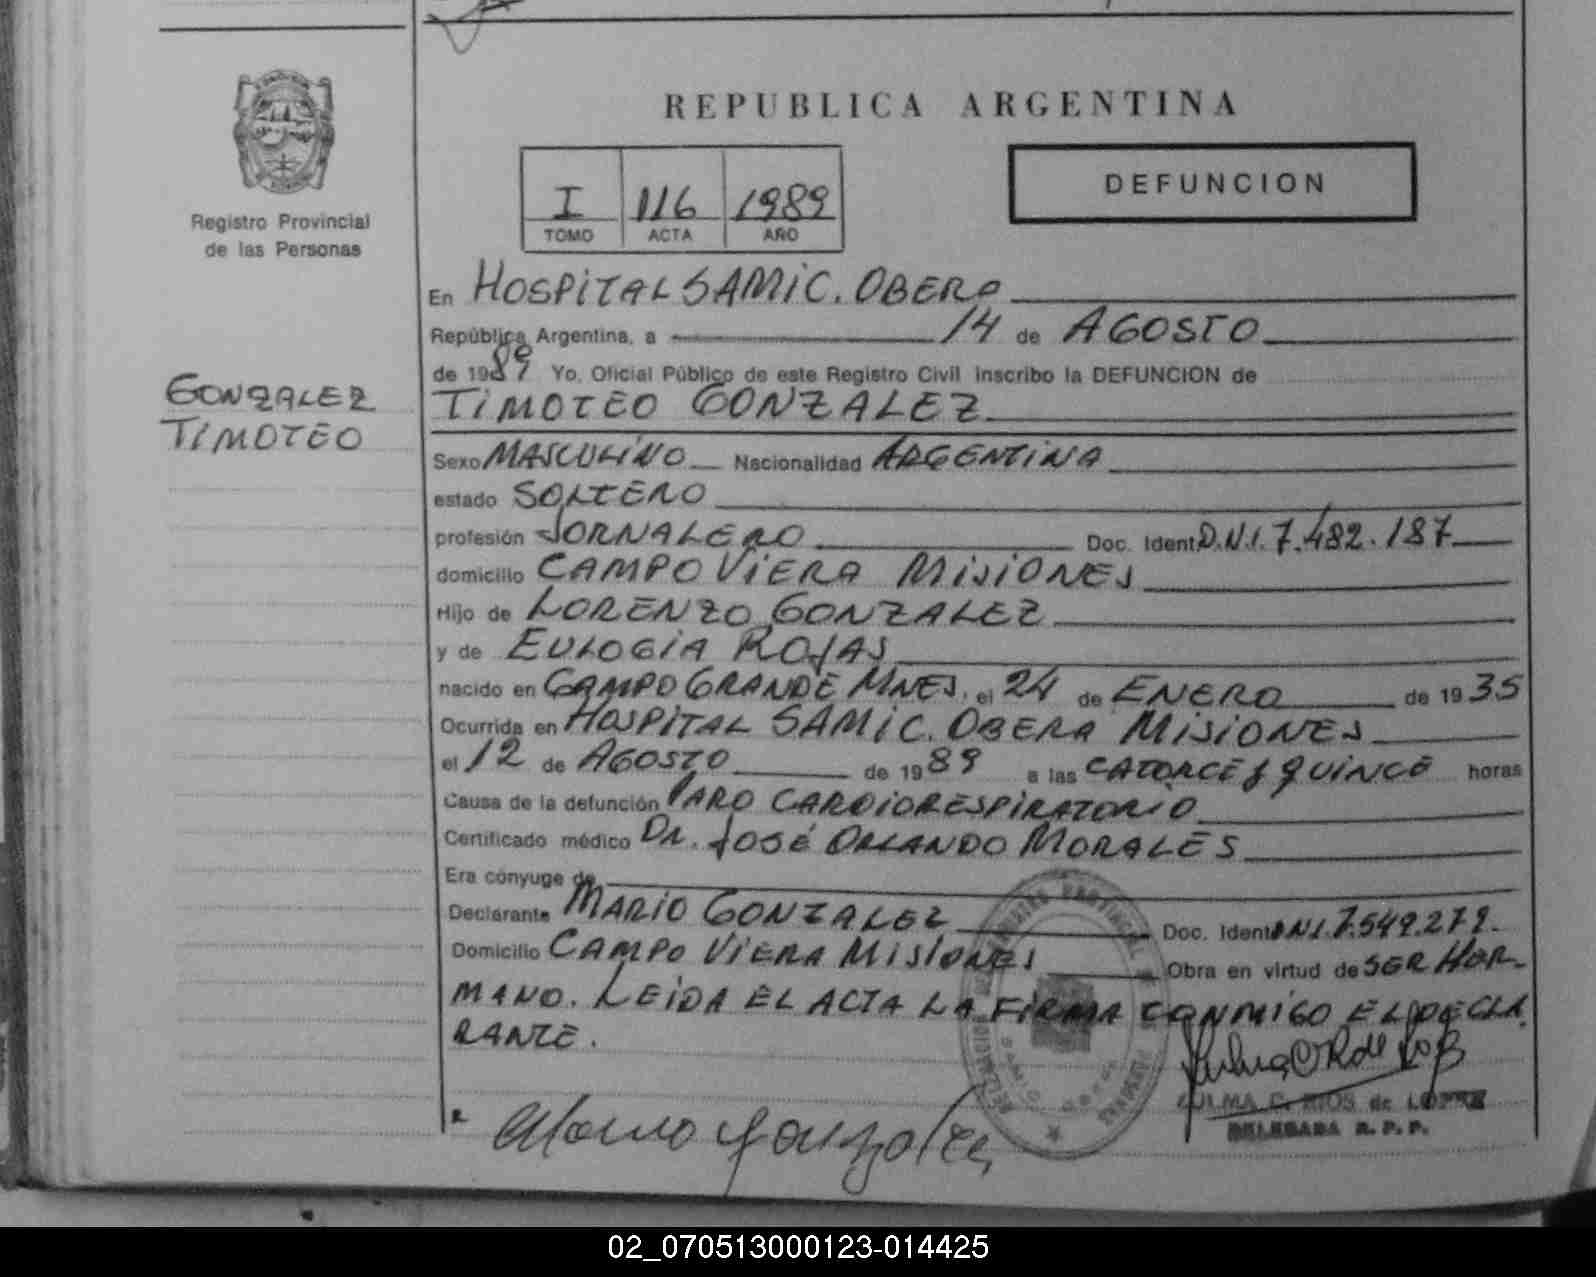 REPUBLICA ARGENTINA
I 116 1989
TOMO ACTA AÑO
DEFUNCION
Registro Provincial
de las Personas
GONZALEZ
TIMOTEO
En HOSPITAL SAMIC. OBERA
República Argentina, a 14 de AGOSTO
de 1989 Yo, Oficial Público de este Registro Civil inscribo la DEFUNCION de
TIMOTEO GONZALEZ
Sexo MASCULINO Nacionalidad ARGENTINA
estado SOLTERO
profesión JORNALERO Doc. Ident. D.N.I. 7.482.187
domicilio CAMPO VIERA MISIONES
Hijo de LORENZO GONZALEZ
y de EULOGIA ROJAS
nacido en CAMPO GRANDE MNES. el 24 de ENERO de 1935
Ocurrida en HOSPITAL SAMIC. OBERA MISIONES
el 12 de AGOSTO de 1989 a las CATORCE y QUINCE horas
Causa de la defunción PARO CARDIORESPIRATORIO
Certificado médico DR. JOSÉ ORLANDO MORALES
Era cónyuge de
Declarante MARIO GONZALEZ Doc. Ident. DNI. 7.549.279.
Domicilio CAMPO VIERA MISIONES Obra en virtud de SER HER-
MANO. LEIDA EL ACTA LA FIRMA CONMIGO EL DECLA
RANTE.
ZULMA C. RIOS de LOPEZ
DELEGADA R. P. P.
Mario Gonzalez
02_070513000123-014425